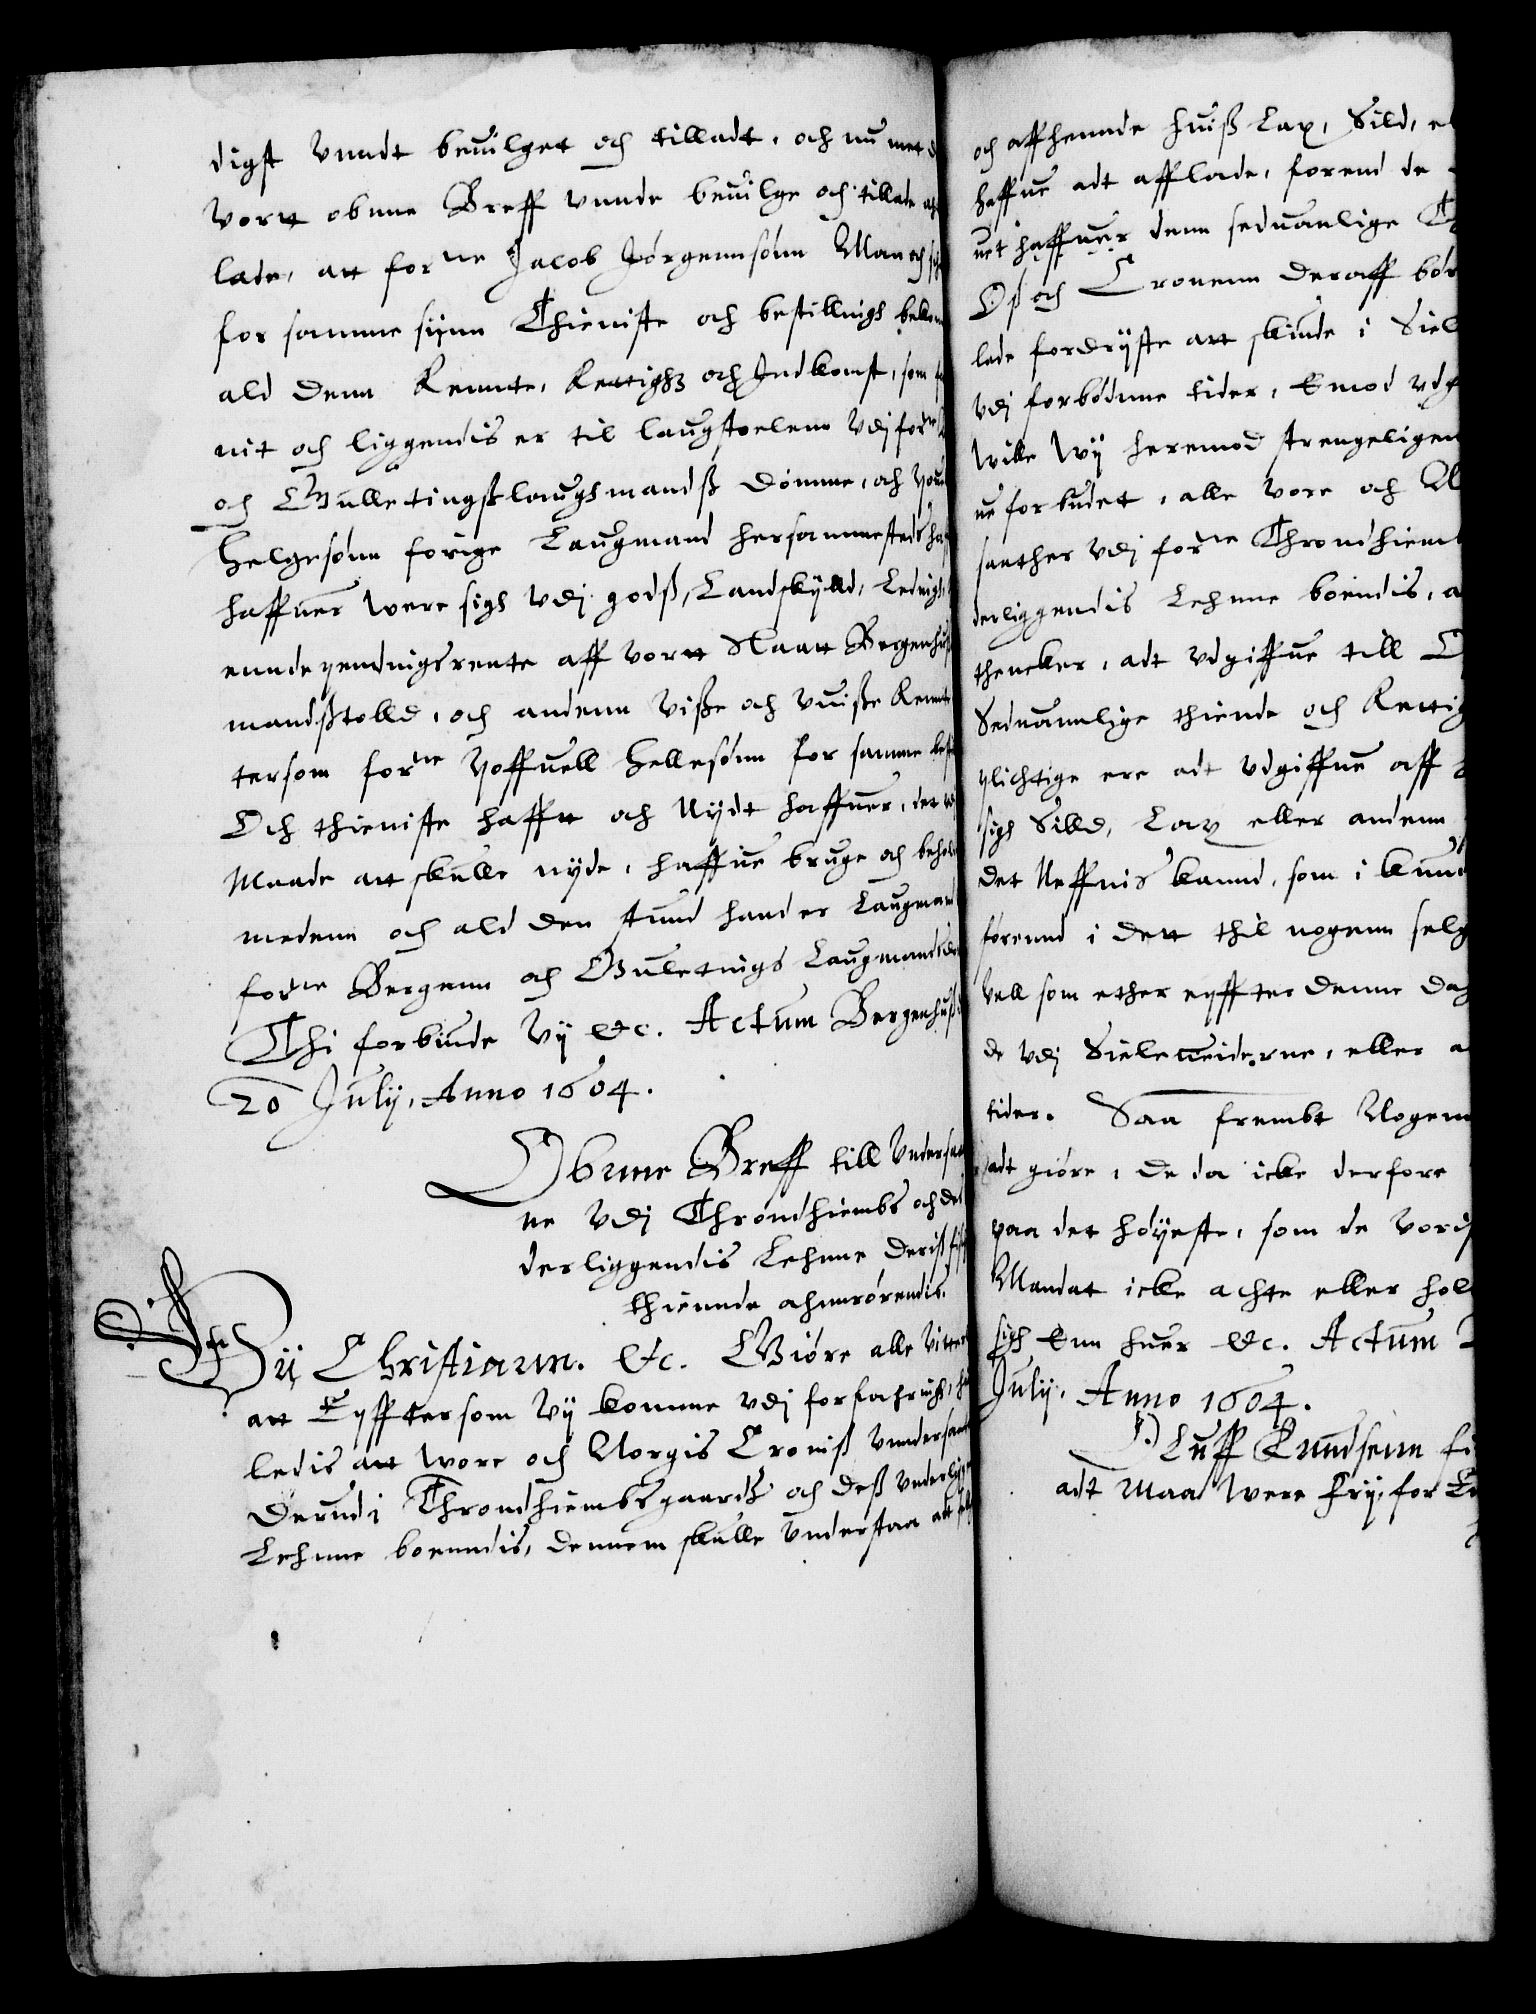 digst vnndt beuilget och tilladt, och nu met
Vortt obnne Breff vnnde beuilge och tillade
lade, att forne Jacob Jørgennsønn Maa och
for samme siynn Thieniste och bestillnigh
ald denn Rennte, Rettighz och Jndkomst, som
nit och liggendis er til laugstoelenn Vdj forne
och Gulletingslaughmandß dømme, och
Helgesønn forige Laugmand hersammesteds
haffuer were sigh Vdj godß, Landskylld, Lednigh
ennde yendnigsrente aff vortt Slaatt Bergenhuß
mandßtolld, och andenn Viße och Vuiße Rennte
tersom forne Yoffuell Hellesønn for samme
Och thieniste hafft och Nydt haffuer, det
Maade att skulle nyde, haffue bruge och behol
medenn och ald den stund hand er Laugmand
forne Bergenn och Guletings Laugmands
Thi forbiude Vy etc. Actum Bergenhuß
20 Julij, Anno 1604.
Obnne Breff till Vndersaa
ne Vdj Throndhiembs och de
derliggendis Lehnne deris
thiennde ahnrørendis.
Wii Christiann. etc. Giøre alle Vitter
att Eyfftersom Vy komme vdj forfarnigh,
ledis att wore och Norgis Croniß Vnndersaa
Derudi Throndhiembsgaardß och deß Vnderligge
Lehnne boenndis, dennem skulle Vnderstaa att
och affhennde huiß Lax, Sild, el
haffue adt afflade, forend de
uet haffuer denn seduanlige
Oß och Cronenn deraff bør
lede fordryste att skiude i Siel
Vdj forbødnne tider, Emod vdg
Wille Wy heremod strengeligen
ue forbudet, alle Vore och
saather Vdj forne Throndhiemb
derliggendis Lehnne boendis, a
thencker, adt Vdgiffue till
Seduannlige thiende och Rettig
plichtige ere adt Vdgiffue aff
sigh Silld, Lax eller andenn
det Neffnis kannd, som i kund
førennd i dett thil nogenn selg
Vell som ether eyffter denne dag
de Vdj Sieleueiderne, eller a
tider. Saa frembt Nogenn
adt giøre, de da icke derfore
paa det høyeste, som de Voris
Mandat icke achte eller hol
sigh Enn huer etc. Actum
Julij, Anno 1604.
Oluff Knudsenn
adt Maa Were frij, for